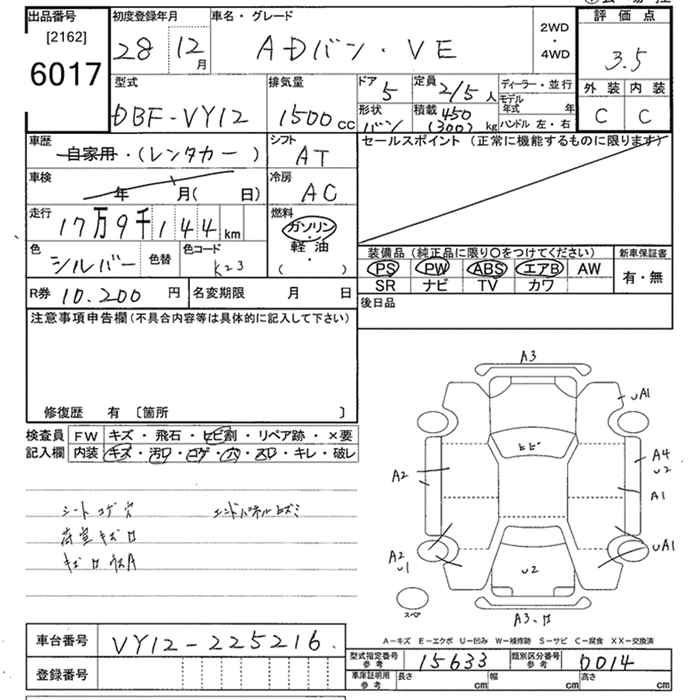 出品番号 初度登録年月 車名・グレード 評価点
[2162] 2WD
6017 28 12月 ADバン・VE ・ 3.5
4WD
型式 排気量 ドア 5 定員 2/5人 ディーラー・並行 外装 内装
モデル年式 年
DBF-VY12 1500cc 形状 バン 積載 450(300)kg ハンドル 左・右 C C
車歴 シフト セールスポイント(正常に機能するものに限ります)
自家用・(レンタカー) AT
車検 冷房
年 月( 日) AC
走行 燃料
17万9千144km ガソリン
・
色 色替 色コード 軽油 装備品(純正品に限り〇をつけてください) 新車保証書
シルバー K23 ( ) PS PW ABS エアB AW 有・無
SR ナビ TV カワ
R券 10.200円 名変期限 月 日 後日品
注意事項申告欄(不具合内容等は具体的に記入して下さい)
修復歴 有 [箇所 ]
検査員 FW キズ・飛石・ヒビ割・リペア跡・×要
記入欄 内装 キズ・汚レ・コゲ・穴・スレ・キレ・破レ
シートコゲ穴 エンドパネルヒズミ
荷室キズ
A3
uA1
ヒビ
A2 A4
u2
A1
A2 uA1
u1
u2
スペア
A3.
A-キズ E-エクボ U-凹み W-補修跡 S-サビ C-腐食 XX-交換済
車台番号 VY12-225216 型式指定番号 参考 15633 類別区分番号 参考 0014
登録番号 車庫証明用 参考 長さ cm 幅 cm 高さ cm